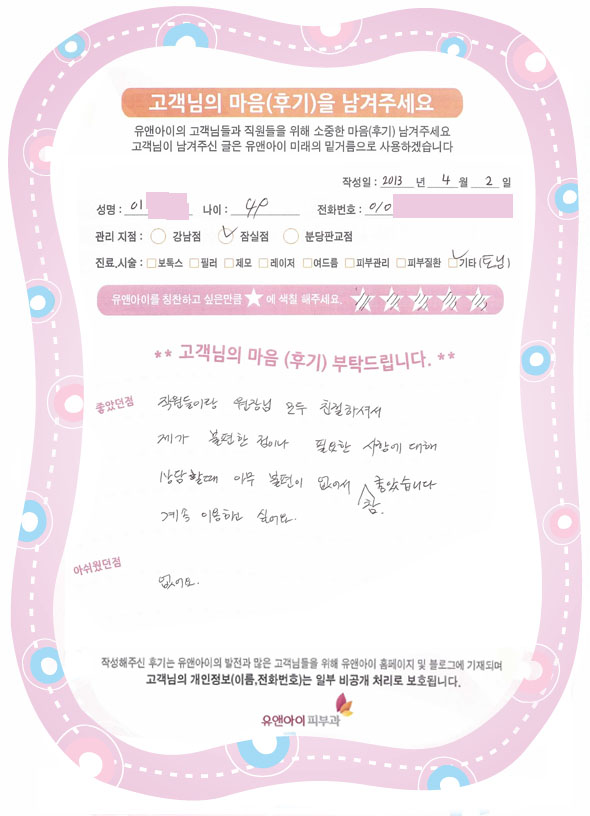 고객님의 마음(후기)을 남겨주세요
유앤아이의 고객님들과 직원들을 위해 소중한 마음(후기) 남겨주세요
고객님이 남겨주신 글은 유앤아이 미래의 밑거름으로 사용하겠습니다
작성일 : 2013 년 4 월 2 일
성명 : 이 나이 : 40 전화번호 : 010
관리 지점 : 강남점 잠실점 분당판교점
진료,시술 : 보톡스 필러 제모 레이저 여드름 피부관리 피부질환 기타 (토닝)
유앤아이를 칭찬하고 싶은만큼 ★ 에 색칠 해주세요.
** 고객님의 마음 (후기) 부탁드립니다. **
좋았던점
직원들이랑 원장님 모두 친절하셔서
제가 불편한 점이나 필요한 사항에 대해
상담할때 아무 불편이 없어서 참 좋았습니다
계속 이용하고 싶어요.
아쉬웠던점
없어요.
작성해주신 후기는 유앤아이의 발전과 많은 고객님들을 위해 유앤아이 홈페이지 및 블로그에 기재되며
고객님의 개인정보(이름,전화번호)는 일부 비공개 처리로 보호됩니다.
유앤아이 피부과